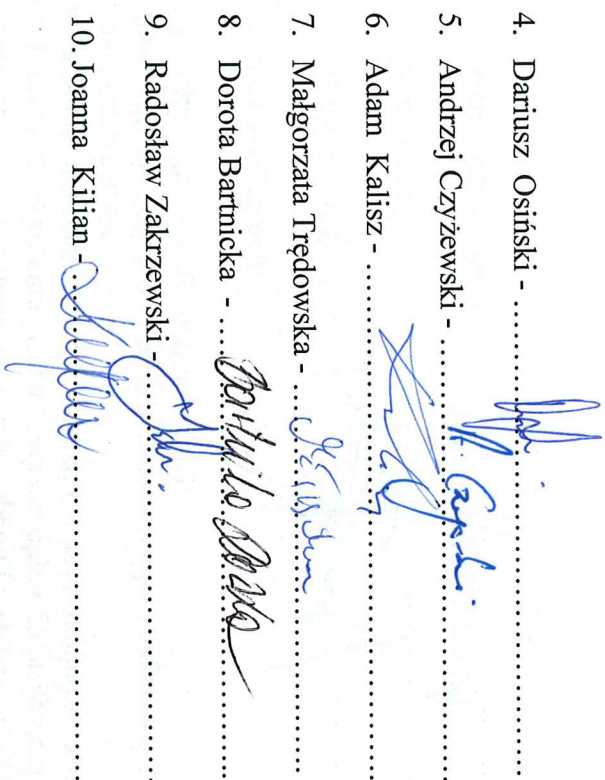 4. Dariusz Osiński - ..............................
5. Andrzej Czyżewski - ..............................
6. Adam Kalisz - ..............................
7. Małgorzata Trędowska - ..............................
8. Dorota Bartnicka - ..............................
9. Radosław Zakrzewski - ..............................
10. Joanna Kilian - ..............................